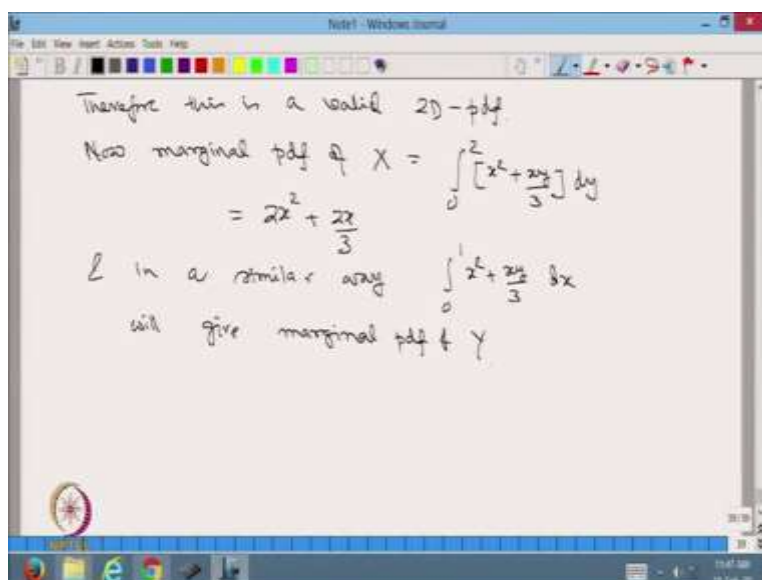 Note1 - Windows Journal
File Edit View Insert Actions Tools Help
Therefore this is a valid 2D-pdf.
Now marginal pdf of X = ∫₀² [x² + xy/3] dy
= 2x² + 2x/3
& in a similar way ∫₀¹ x² + xy/3 dx
will give marginal pdf of Y
NPTEL